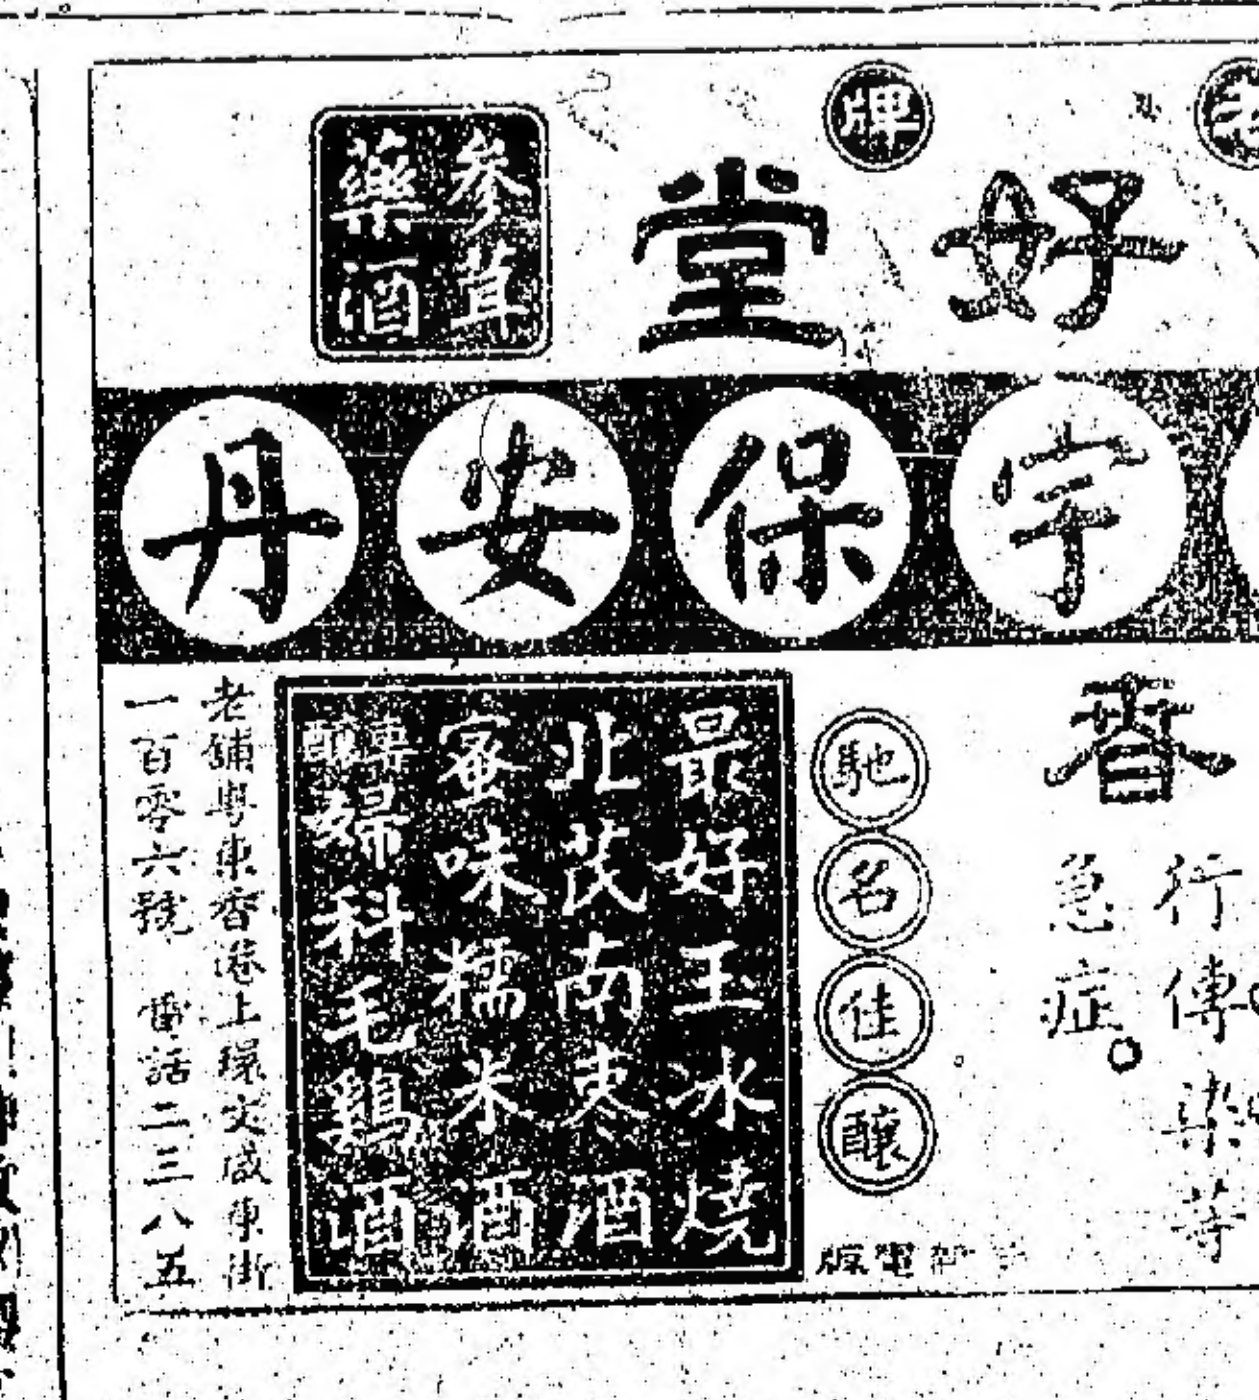 牌
好堂
參茸
藥酒
宇保安丹
香
行傳染等
急症。
馳名佳釀
最好玉冰燒
北芪南棗酒
蜜味糯米酒
婦科毛鷄酒
老舖粤東香港上環文咸東街
一百零六號 電話二三八五